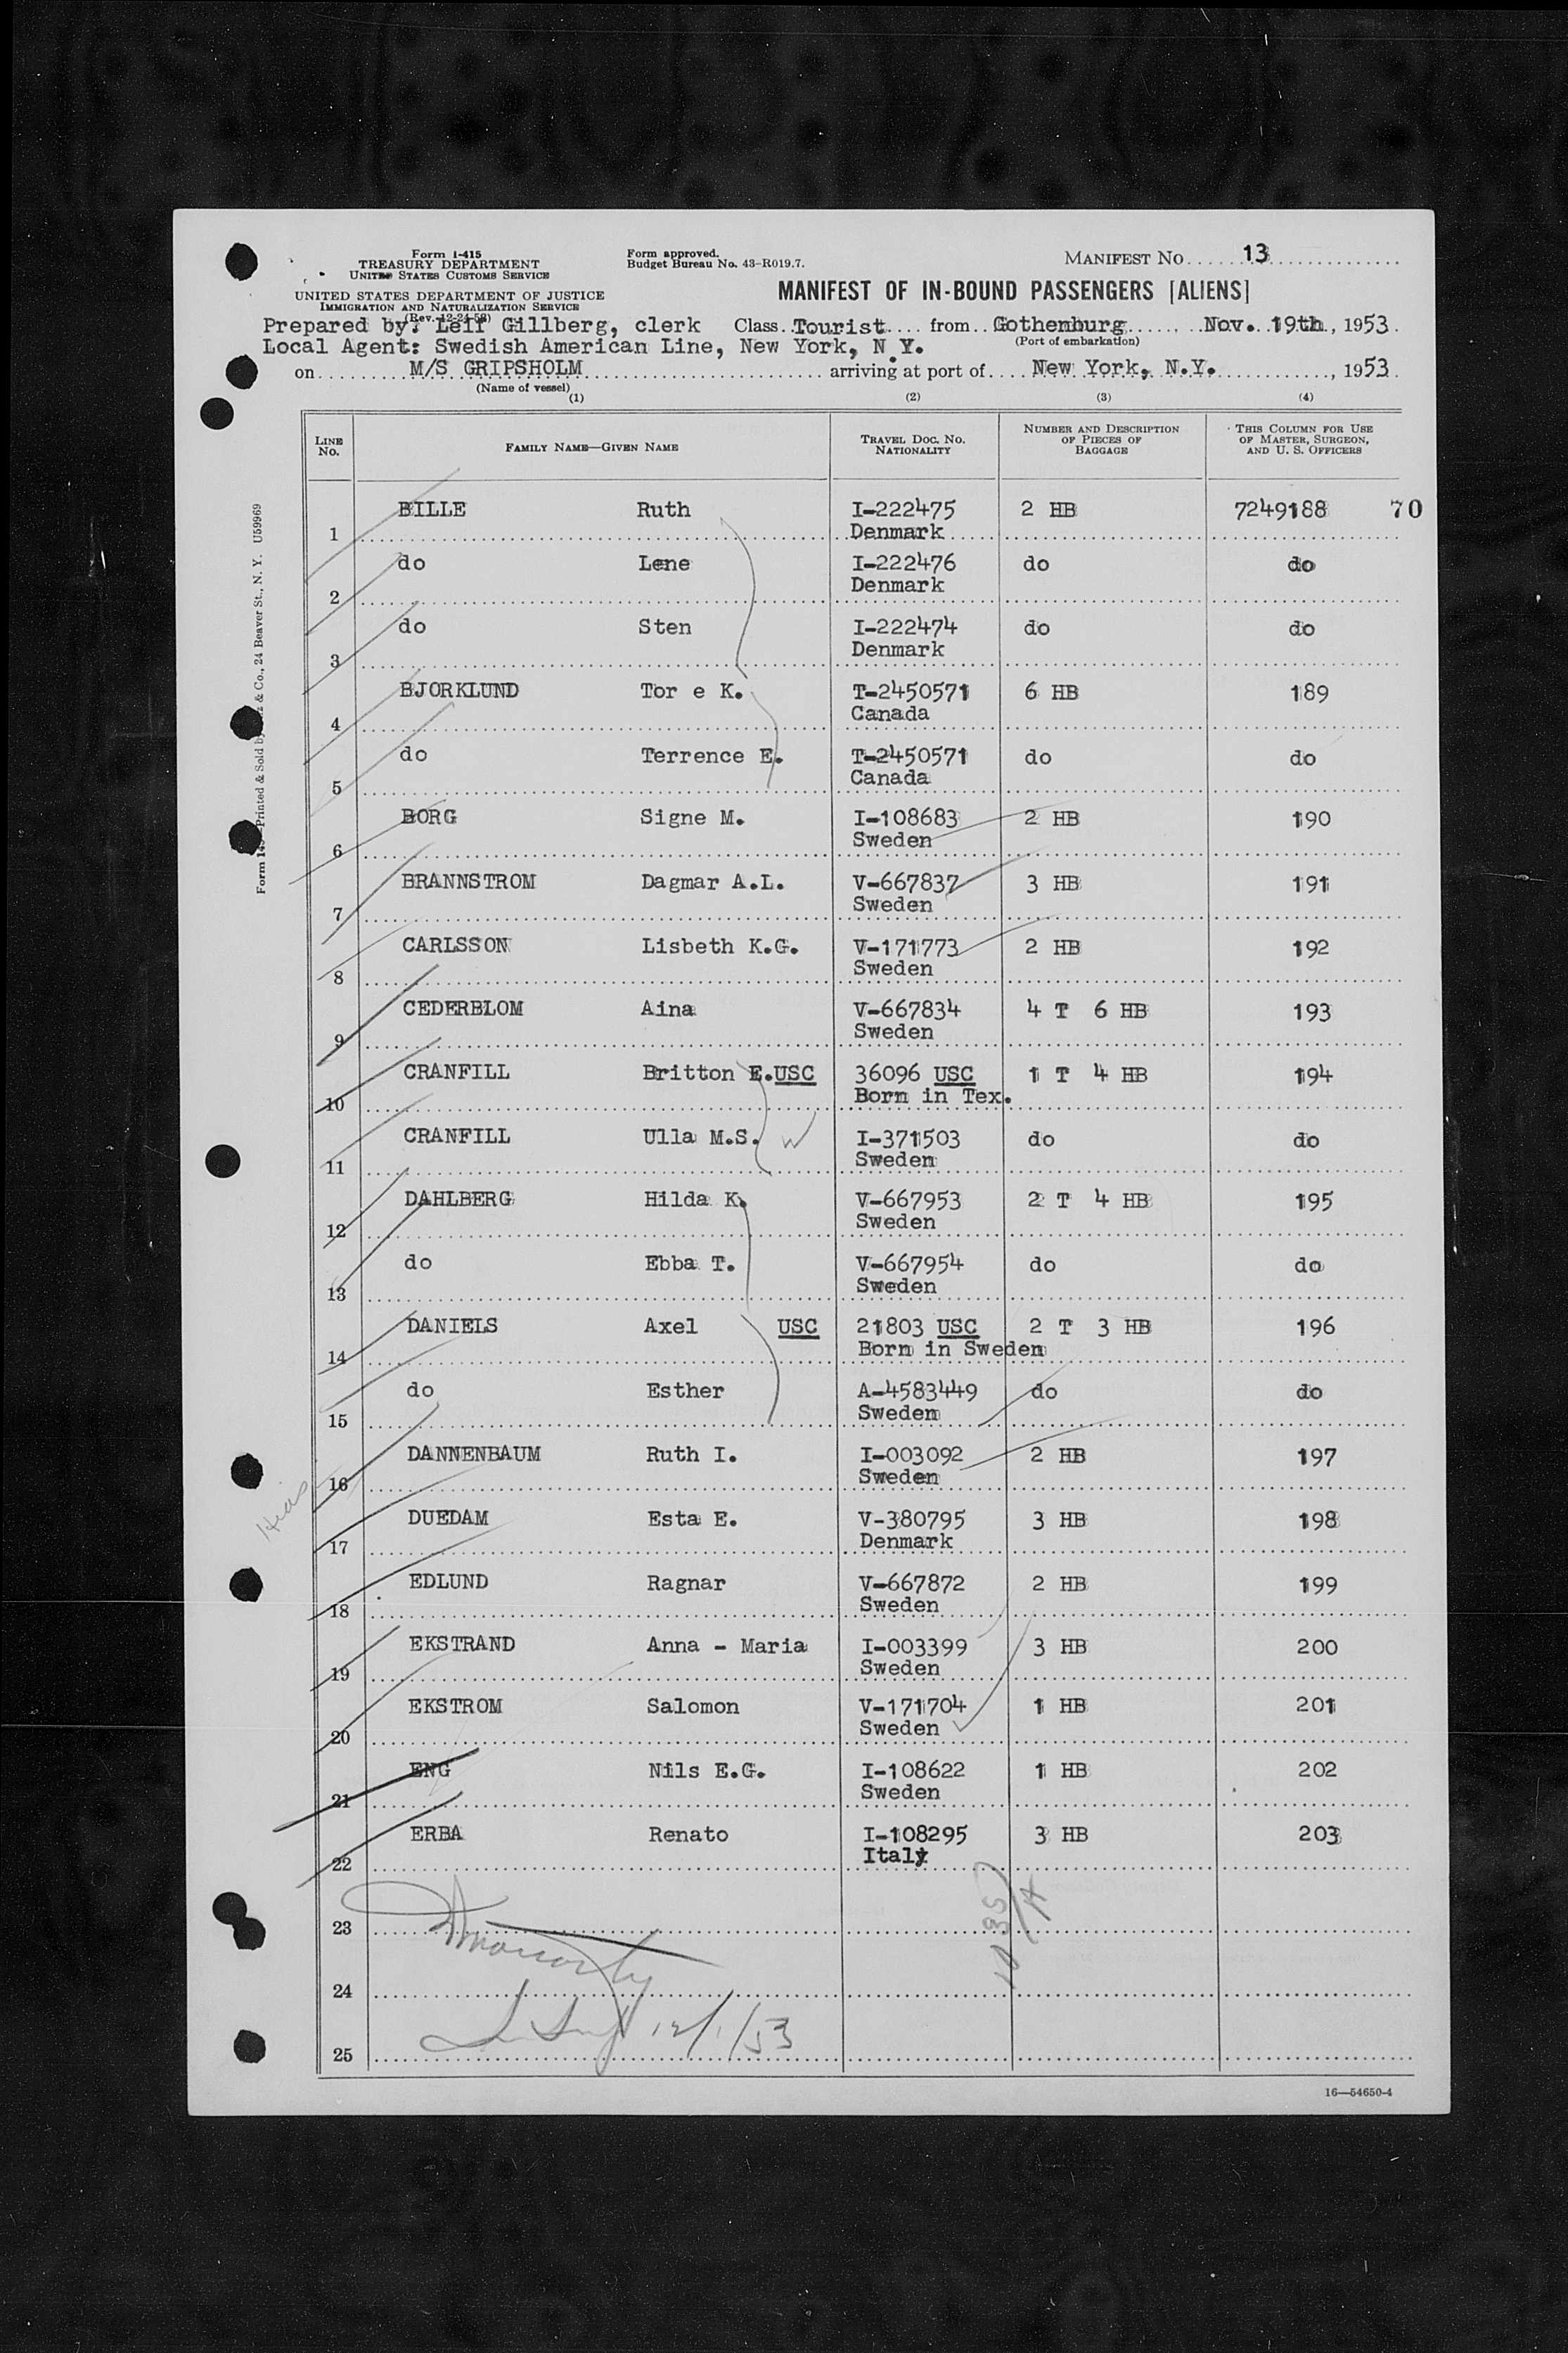 Form I-415
TREASURY DEPARTMENT
UNITED STATES CUSTOMS SERVICE
UNITED STATES DEPARTMENT OF JUSTICE
IMMIGRATION AND NATURALIZATION SERVICE
Form approved.
Budget Bureau No. 43-R019.7.
MANIFEST No. 13
MANIFEST OF IN-BOUND PASSENGERS [ALIENS]
Prepared by: Leif Gillberg, clerk Class Tourist from Gothenburg Nov. 19th, 1953.
Local Agent: Swedish American Line, New York, N.Y. (Port of embarkation)
on M/S GRIPSHOLM arriving at port of New York, N.Y. , 1953.
(Name of vessel)
(1) (2) (3) (4)
LINE No. FAMILY NAME—GIVEN NAME TRAVEL DOC. NO. NATIONALITY NUMBER AND DESCRIPTION OF PIECES OF BAGGAGE THIS COLUMN FOR USE OF MASTER, SURGEON, AND U. S. OFFICERS
1 BILLE Ruth I-222475 2 HB 7249188 70
Denmark
2 do Lene I-222476 do do
Denmark
3 do Sten I-222474 do do
Denmark
4 BJORKLUND Tor e K. T-2450571 6 HB 189
Canada
5 do Terrence E. T-2450571 do do
Canada
6 BORG Signe M. I-108683 2 HB 190
Sweden
7 BRANNSTROM Dagmar A.L. V-667837 3 HB 191
Sweden
8 CARLSSON Lisbeth K.G. V-171773 2 HB 192
Sweden
9 CEDERBLOM Aina V-667834 4 T 6 HB 193
Sweden
10 CRANFILL Britton E.USC 36096 USC 1 T 4 HB 194
Born in Tex.
11 CRANFILL Ulla M.S. W I-371503 do do
Sweden
12 DAHLBERG Hilda K. V-667953 2 T 4 HB 195
Sweden
13 do Ebba T. V-667954 do do
Sweden
14 DANIELS Axel USC 21803 USC 2 T 3 HB 196
Born in Sweden
15 do Esther A-4583449 do do
Sweden
16 DANNENBAUM Ruth I. I-003092 2 HB 197
Sweden
17 DUEDAM Esta E. V-380795 3 HB 198
Denmark
18 EDLUND Ragnar V-667872 2 HB 199
Sweden
19 EKSTRAND Anna - Maria I-003399 3 HB 200
Sweden
20 EKSTROM Salomon V-171704 1 HB 201
Sweden
21 ENG Nils E.G. I-108622 1 HB 202
Sweden
22 ERBA Renato I-108295 3 HB 203
Italy
23
24
12/1/53
25
16—54650-4
Hias